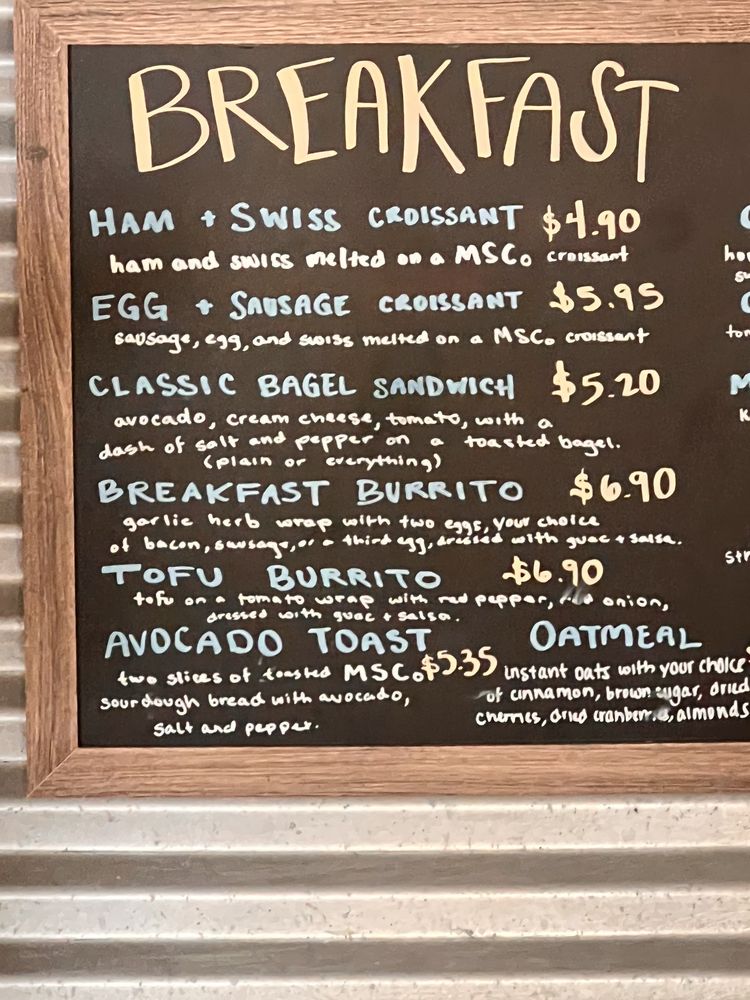 BREAKFAST
HAM + SWISS CROISSANT $4.90
ham and swiss melted on a MSCo croissant
EGG + SAUSAGE CROISSANT $5.95
sausage, egg, and swiss melted on a MSCo croissant
CLASSIC BAGEL SANDWICH $5.20
avocado, cream cheese, tomato, with a
dash of salt and pepper on a toasted bagel.
(plain or everything)
BREAKFAST BURRITO $6.90
garlic herb wrap with two eggs, your choice
of bacon, sausage, or a third egg, dressed with guac + salsa.
TOFU BURRITO $6.90
tofu on a tomato wrap with red pepper, red onion,
dressed with guac + salsa.
AVOCADO TOAST $5.35
two slices of toasted MSCo
sourdough bread with avocado,
salt and pepper.
OATMEAL
instant oats with your choice
of cinnamon, brown sugar, dried
cherries, dried cranberries, almonds